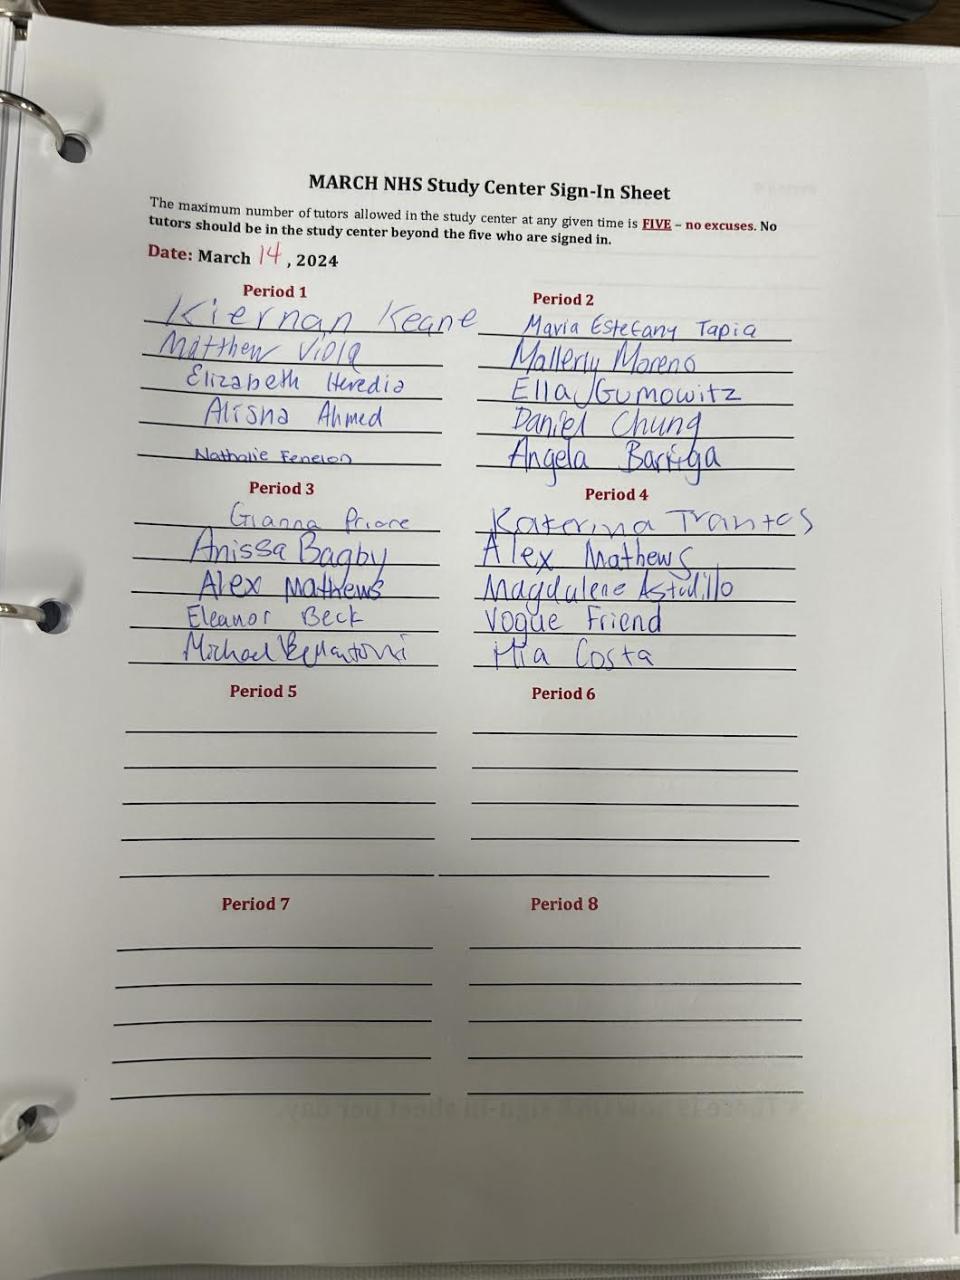 MARCH NHS Study Center Sign-In Sheet
The maximum number of tutors allowed in the study center at any given time is FIVE – no excuses. No
tutors should be in the study center beyond the five who are signed in.
Date: March 14, 2024
Period 1
Kiernan Keane
Matthew Viola
Elizabeth Heredia
Alisha Ahmed
Nathalie Fenelon
Period 2
Maria Estefany Tapia
Mallerly Moreno
Ella Gumowitz
Daniel Chung
Angela Barriga
Period 3
Gianna Priore
Anissa Bagby
Alex Mathews
Eleanor Beck
Michael
Period 4
Katerina Trantos
Alex Mathews
Magdalene Astudillo
Vogue Friend
Mia Costa
Period 5
Period 6
Period 7
Period 8